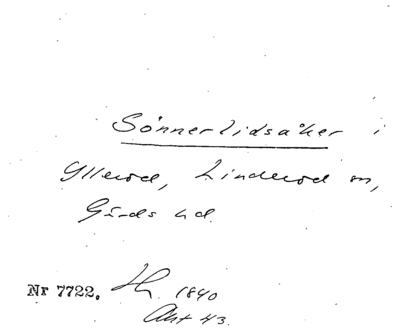 Sönnerlidsåker i
Yllerød, Linderød sn,
Gärds hd.
Nr 7722. 1840
Akt 43.